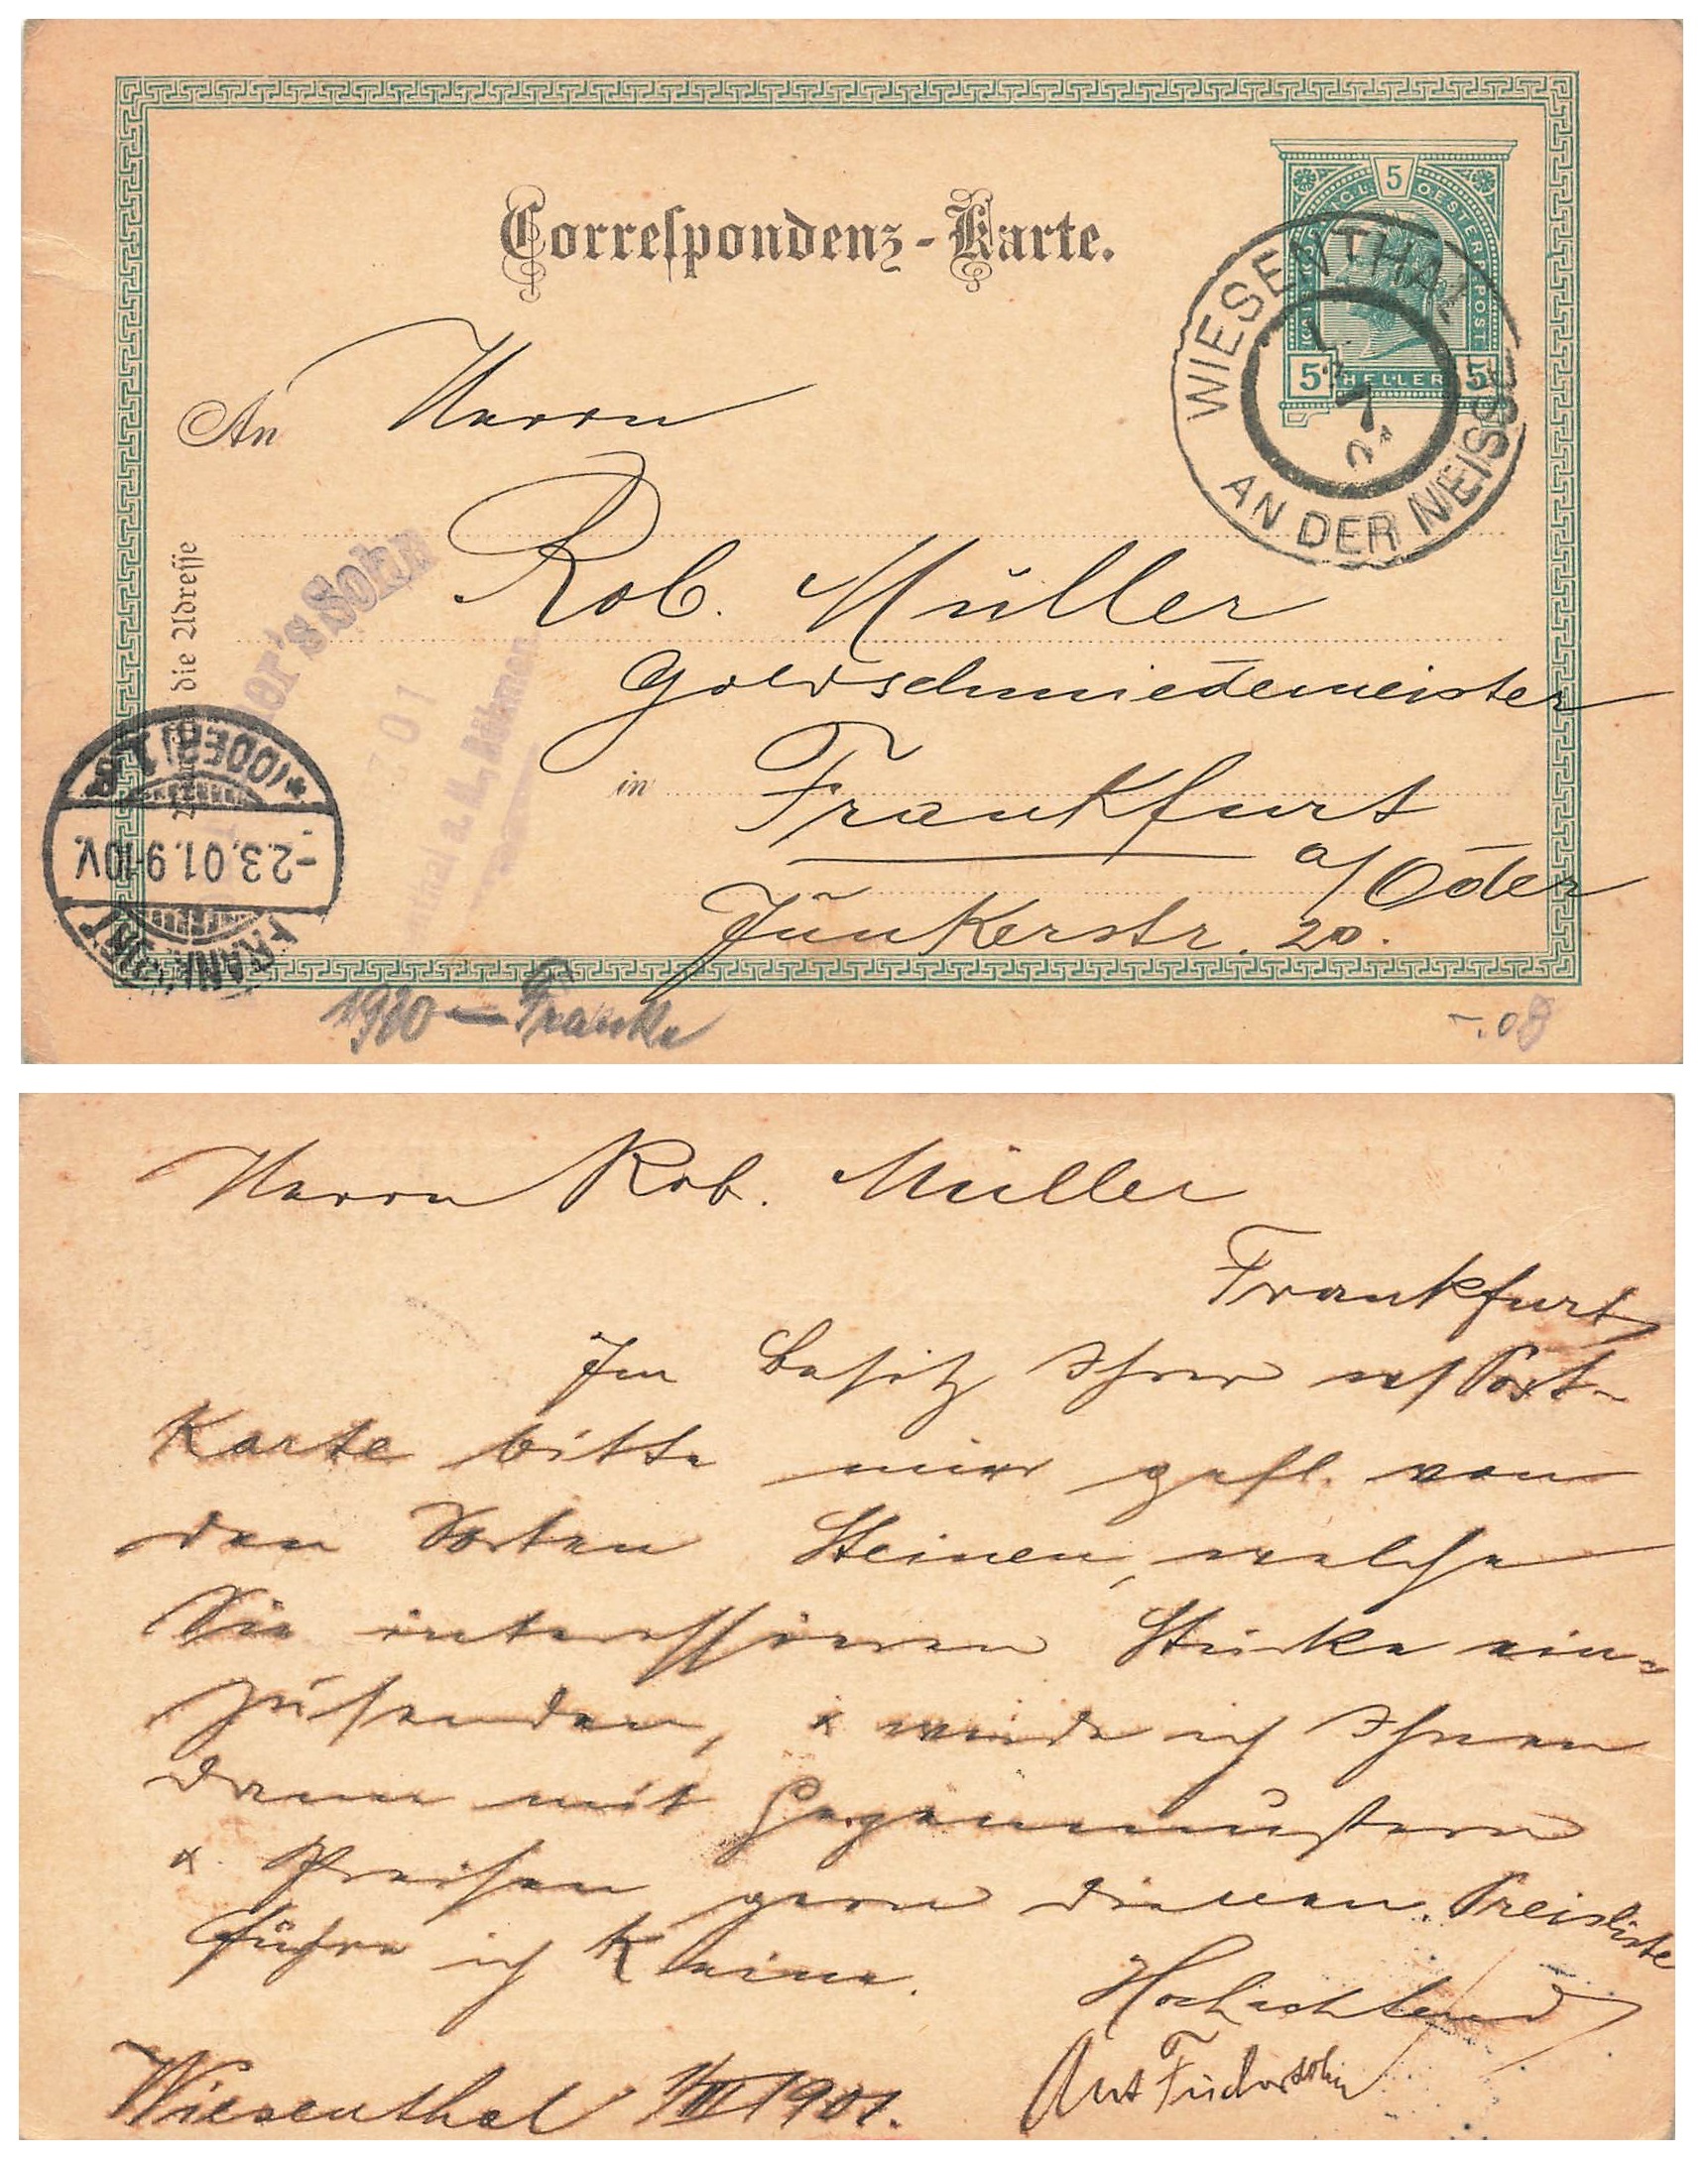 Correspondenz-Karte.
KAIS. KÖNIGL. OESTERR. POST
5
5 HELLER 5
WIESENTHAL
AN DER NEISSE
An Herrn
Rob. Müller
Goldschmiedemeister
in Frankfurt
a/Oder
Junkerstr. 20.
die Adresse
er's Sohn
301
thal a. N., Böhmen
FRANKFURT
-2.3.01.9-10V.
*(ODER)1
1920 - Franke
-.08
Herrn Rob. Müller
Frankfurt
Im Besitz Ihrer Post-
Karte bitte mir gefl. von
den Sorten Steinen, welche
Sie interessieren Stücke ein-
zusenden, & würde ich Ihnen
dann mit Gegenmustern
& Preisen gern dienen. Preisliste
führe ich Keine.
Hochachtend
Ant Fischersohn
Wiesenthal 1/III 1901.